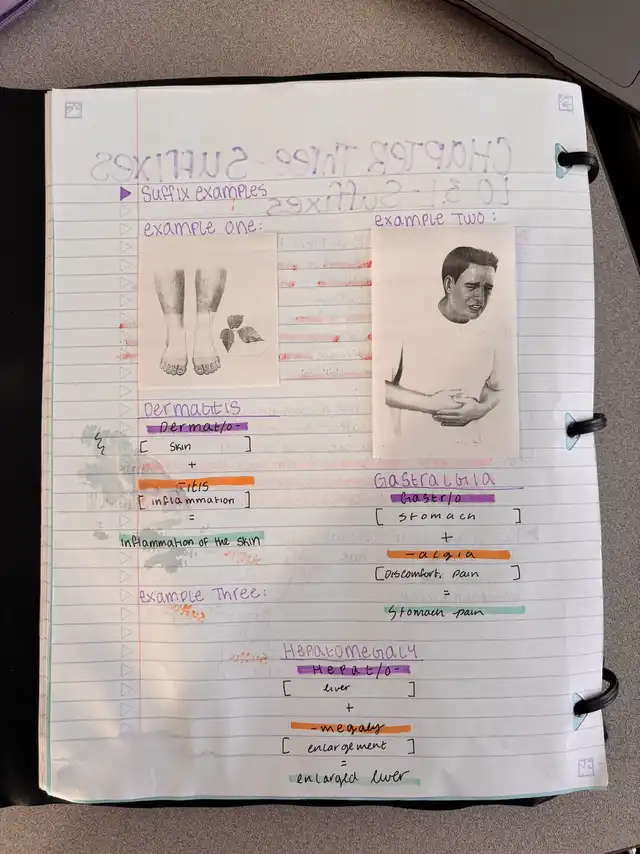 CHAPTER THREE - SUFFIXES
LO 3.1 - Suffixes
Suffix examples
example one:
example Two:
DERMATITIS
Dermat/o-
[ skin ]
+
-itis
[ inflammation ]
=
inflammation of the skin
GASTRALGIA
Gastr/o
[ stomach ]
+
-algia
[ Discomfort, pain ]
=
Stomach pain
example Three:
HEPATOMEGALY
Hepat/o-
[ liver ]
+
-megaly
[ enlargement ]
=
enlarged liver